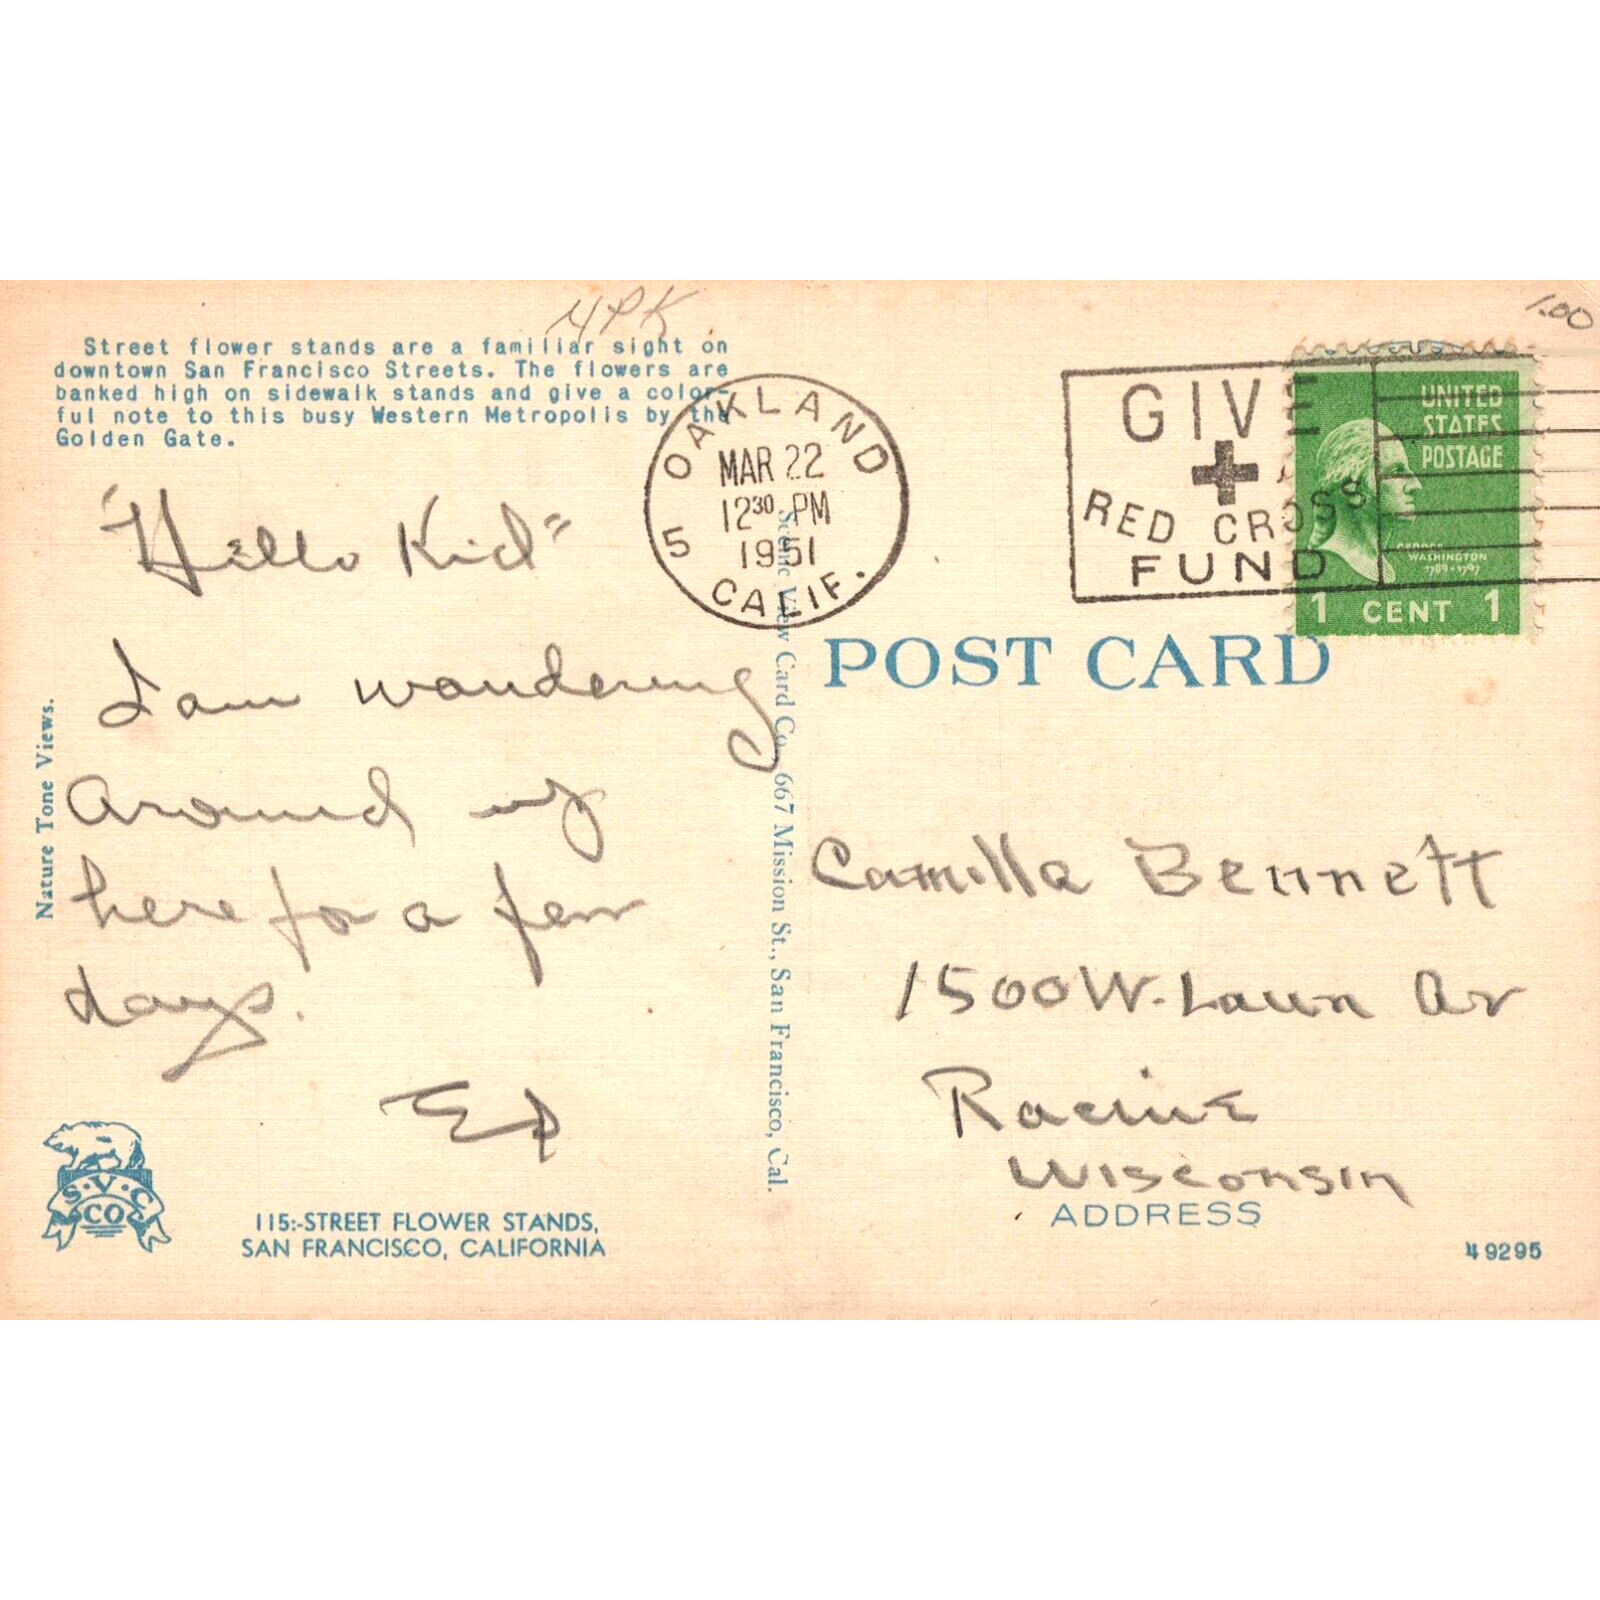 4PK
1.00
Street flower stands are a familiar sight on
downtown San Francisco Streets. The flowers are
banked high on sidewalk stands and give a color-
ful note to this busy Western Metropolis by the
Golden Gate.
"Hello Kid"
I am wandering
around up
here for a few
days.
Ed
Nature Tone Views.
S.V.C
CO
115:-STREET FLOWER STANDS,
SAN FRANCISCO, CALIFORNIA
Scenic View Card Co., 667 Mission St., San Francisco, Cal.
OAKLAND
MAR 22
12 30 PM
1951
5 CALIF.
GIVE
RED CROSS
FUND
UNITED
STATES
POSTAGE
GEORGE
WASHINGTON
1789-1797
1 CENT 1
POST CARD
Camilla Bennett
1500 W. Lawn Av
Racine
Wisconsin
ADDRESS
49295